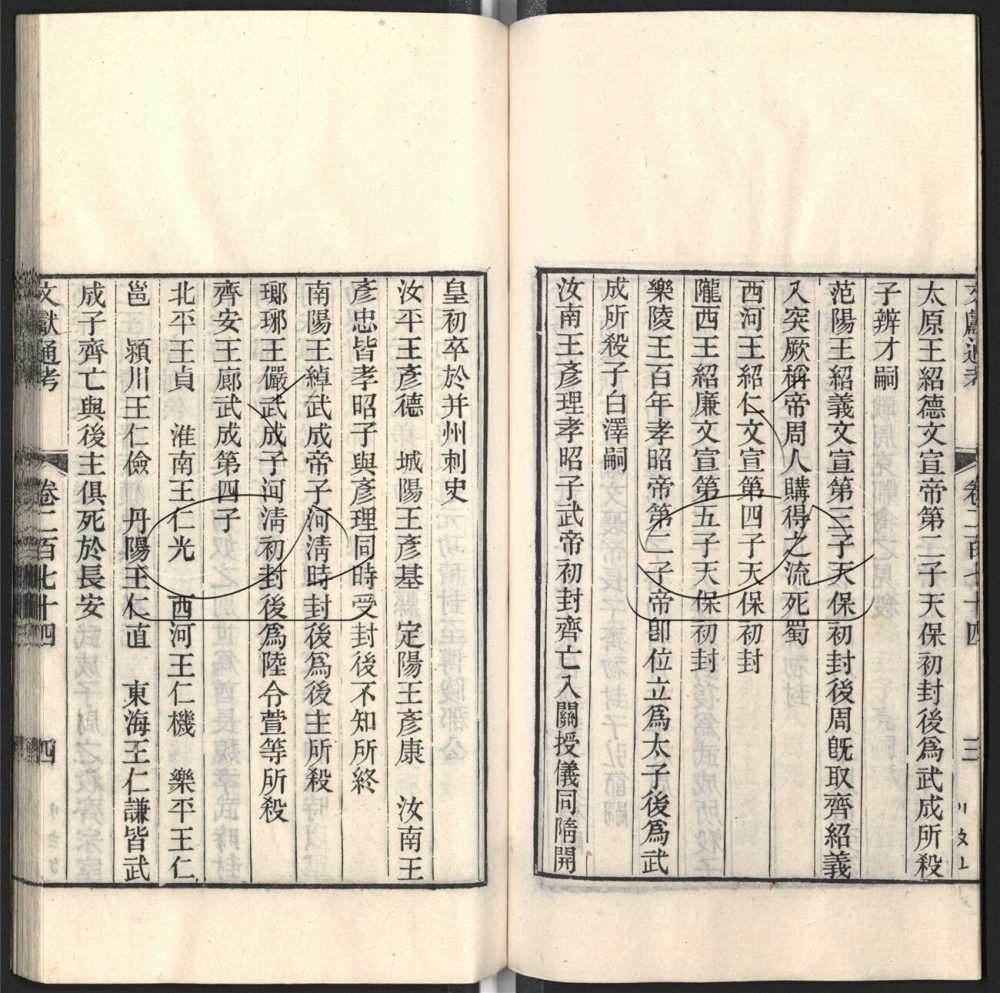 文獻通考 卷二百七十四 三
太原王紹德文宣帝第二子天保初封後為武成所殺
子辨才嗣
范陽王紹義文宣第三子天保初封後周旣取齊紹義
入突厥稱帝周人購得之流死蜀
西河王紹仁文宣第四子天保初封
隴西王紹廉文宣第五子天保初封
樂陵王百年孝昭帝第二子帝卽位立為太子後為武
成所殺子白澤嗣
汝南王彥理孝昭子武帝初封齊亡入關授儀同隋開
皇初卒於并州刺史
汝平王彥德 城陽王彥基 定陽王彥康 汝南王
彥忠皆孝昭子與彥理同時受封後不知所終
南陽王綽武成帝子河清時封後為後主所殺
瑯琊王儼武成子河清初封後為陸令萱等所殺
齊安王廓武成第四子
北平王貞 淮南王仁光 西河王仁機 樂平王仁
邕 潁川王仁儉 丹陽王仁直 東海王仁謙皆武
成子齊亡與後主俱死於長安
文獻通考 卷二百七十四 四